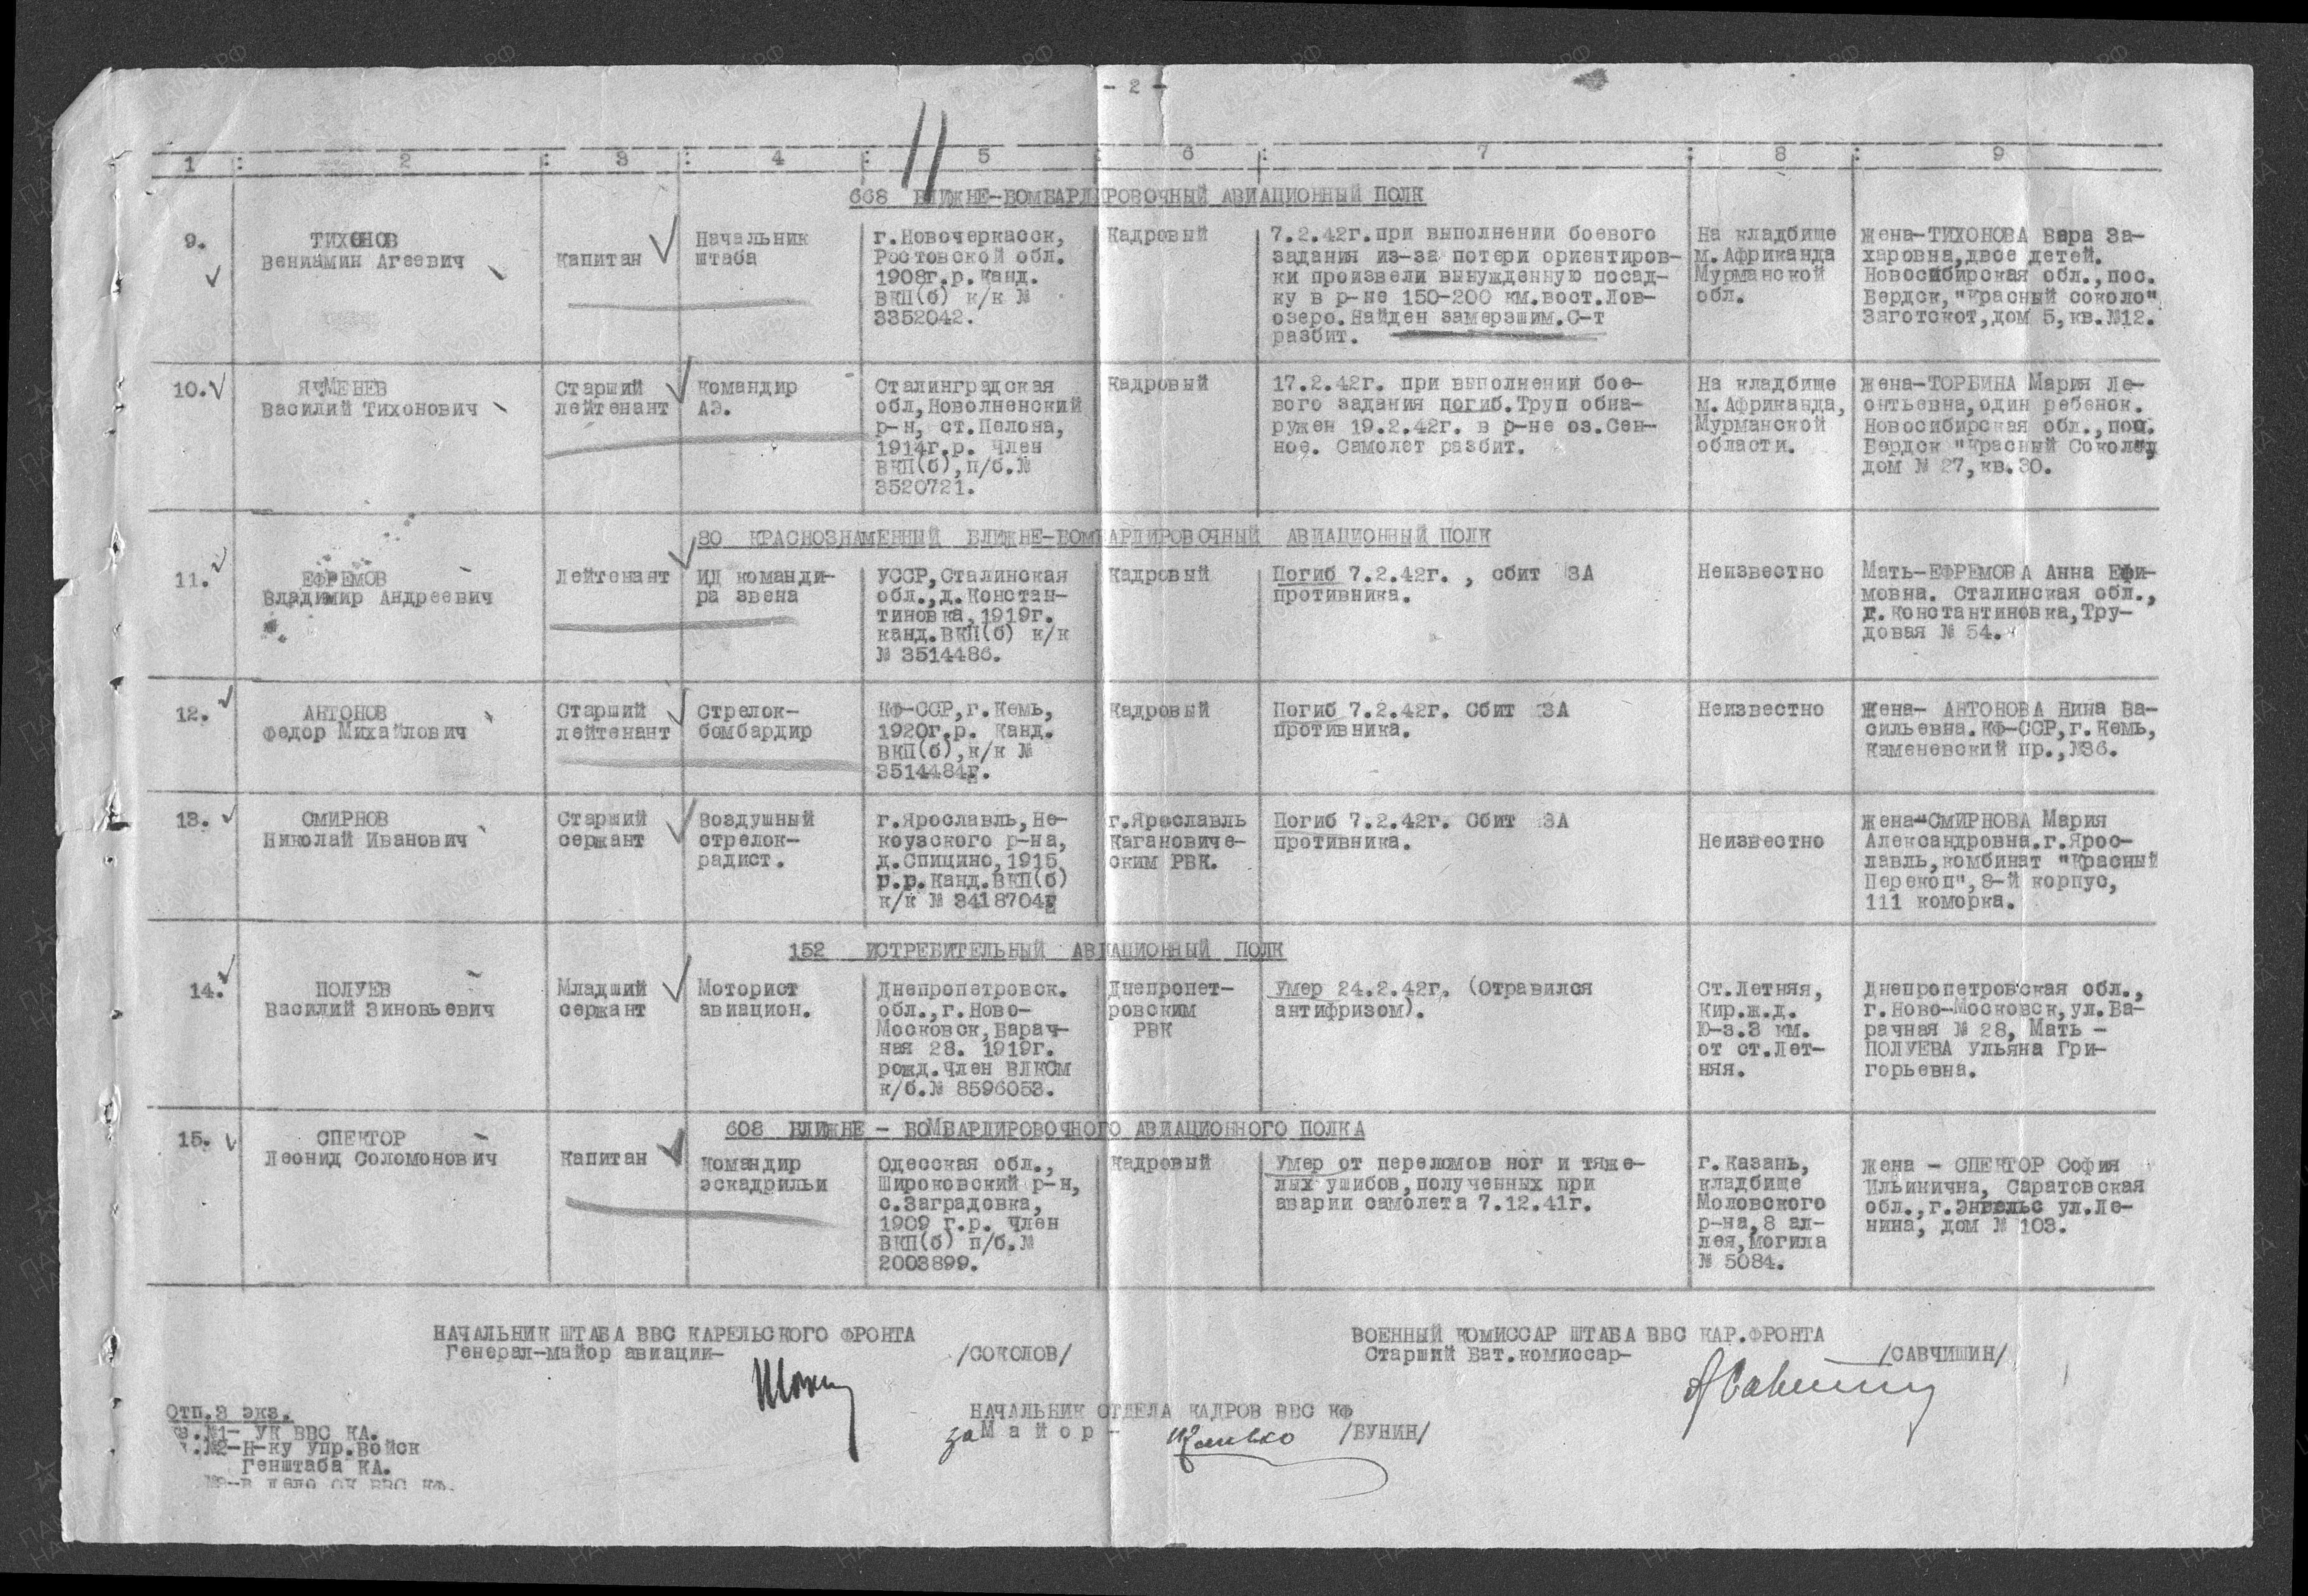 - 2 -
1 : 2 : 3 : 4 : 5 : 6 : 7 : 8 : 9
668 БЛИЖНЕ-БОМБАРДИРОВОЧНЫЙ АВИАЦИОННЫЙ ПОЛК
9.
ТИХОНОВ
Вениамин Агеевич
Капитан
Начальник
штаба
г.Новочеркасск,
Ростовской обл.
1908г.р. Канд.
ВКП(б) к/к №
3352042.
Кадровый
7.2.42г.при выполнении боевого
задания из-за потери ориентиров-
ки произвели вынужденную посад-
ку в р-не 150-200 км.вост.Лов-
озеро.Найден замерзшим.С-т
разбит.
На кладбище
м.Африканда
Мурманской
обл.
Жена-ТИХОНОВА Вера За-
харовна,двое детей.
Новосибирская обл.,пос.
Бердск,"Красный соколо"
Заготскот,дом 5,кв.№12.
10.
ЯЧМЕНЕВ
Василий Тихонович
Старший
лейтенант
Командир
АЭ.
Сталинградская
обл,Новолненский
р-н, ст.Пелона,
1914г.р. Член
ВКП(б),п/б.№
3520721.
Кадровый
17.2.42г. при выполнении бое-
вого задания погиб.Труп обна-
ружен 19.2.42г. в р-не оз.Сен-
ное. Самолет разбит.
На кладбище
м.Африканда,
Мурманской
области.
Жена-ТОРБИНА Мария Ле-
онтьевна,один ребенок.
Новосибирская обл.,пос.
Бердск "Красный Сокол",
дом № 27,кв.30.
80 КРАСНОЗНАМЕННЫЙ БЛИЖНЕ-БОМБАРДИРОВОЧНЫЙ АВИАЦИОННЫЙ ПОЛК
11.
ЕФРЕМОВ
Владимир Андреевич
Лейтенант
ИД команди-
ра звена
УССР,Сталинская
обл.,д.Констан-
тиновка,1919г.
канд.ВКП(б) к/к
№ 3514486.
Кадровый
Погиб 7.2.42г. , сбит ЗА
противника.
Неизвестно
Мать-ЕФРЕМОВА Анна Ефи-
мовна. Сталинская обл.,
г.Константиновка,Тру-
довая № 54.
12.
АНТОНОВ
Федор Михайлович
Старший
лейтенант
Стрелок-
бомбардир
КФ-ССР,г.Кемь,
1920г.р. Канд.
ВКП(б),к/к №
3514484.
Кадровый
Погиб 7.2.42г. Сбит ЗА
противника.
Неизвестно
Жена- АНТОНОВА Нина Ва-
сильевна.КФ-ССР,г.Кемь,
Каменевский пр.,№36.
13.
СМИРНОВ
Николай Иванович
Старший
сержант
Воздушный
стрелок-
радист.
г.Ярославль,Не-
коузского р-на,
д.Спицино,1915
г.р.Канд.ВКП(б)
к/к № 3418704
г.Ярославль
Кагановиче-
ским РВК.
Погиб 7.2.42г. Сбит ЗА
противника.
Неизвестно
Жена-СМИРНОВА Мария
Александровна.г.Ярос-
лавль,комбинат "Красный
Перекоп",8-й корпус,
111 коморка.
152 ИСТРЕБИТЕЛЬНЫЙ АВИАЦИОННЫЙ ПОЛК
14.
ПОЛУЕВ
Василий Зиновьевич
Младший
сержант
Моторист
авиацион.
Днепропетровск.
обл.,г.Ново-
Московск,Барач-
ная 28. 1919г.
рожд.Член ВЛКСМ
к/б.№ 8596053.
Днепропет-
ровским
РВК
Умер 24.2.42г. (Отравился
антифризом).
Ст.Летняя,
Кир.ж.д.
Ю-з.3 км.
от ст.Лет-
няя.
Днепропетровская обл.,
г.Ново-Московск,ул.Ба-
рачная № 28, Мать -
ПОЛУЕВА Ульяна Гри-
горьевна.
608 БЛИЖНЕ - БОМБАРДИРОВОЧНОГО АВИАЦИОННОГО ПОЛКА
15.
СПЕКТОР
Леонид Соломонович
Капитан
Командир
эскадрильи
Одесская обл.,
Широковский р-н,
с.Заградовка,
1909 г.р. Член
ВКП(б) п/б.№
2003899.
Кадровый
Умер от переломов ног и тяже-
лых ушибов,полученных при
аварии самолета 7.12.41г.
г.Казань,
кладбище
Моловского
р-на,8 ал-
лея,могила
№ 5084.
Жена - СПЕКТОР София
Ильинична, Саратовская
обл.,г.Энгельс ул.Ле-
нина, дом № 103.
НАЧАЛЬНИК ШТАБА ВВС КАРЕЛЬСКОГО ФРОНТА
Генерал-майор авиации- /СОКОЛОВ/
ВОЕННЫЙ КОМИССАР ШТАБА ВВС КАР.ФРОНТА
Старший Бат.комиссар- /САВЧИШИН/
НАЧАЛЬНИК ОТДЕЛА КАДРОВ ВВС КФ
за Майор- /БУНИН/
Отп.3 экз.
№1- УК ВВС КА.
№2-Н-ку упр.войск
Генштаба КА.
в дело ОК ВВС КФ.